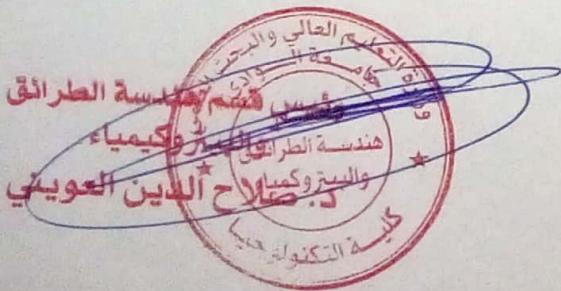 وزارة التعليم العالي والبحث
جامعة الــوادي
رئيس قسم هندسة الطرائق
والبيتروكيمياء
د. صلاح الدين العويني
هندسة الطرائق
والبيتروكيمياء
كلية التكنولوجيا